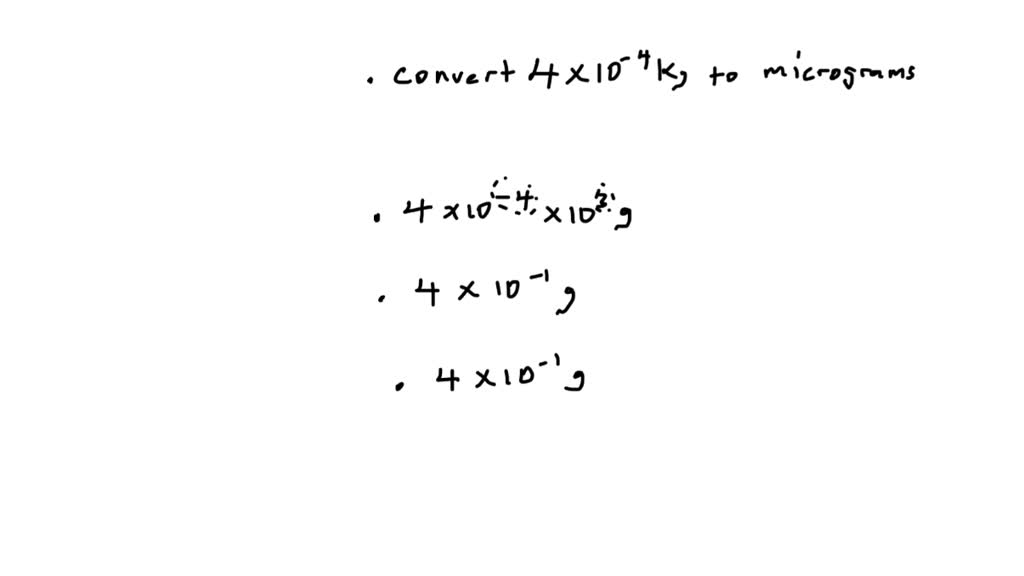 . convert 4 × 10⁻⁴ Kg to micrograms
. 4 × 10⁻⁴ × 10³ g
. 4 × 10⁻¹ g
. 4 × 10⁻¹ g